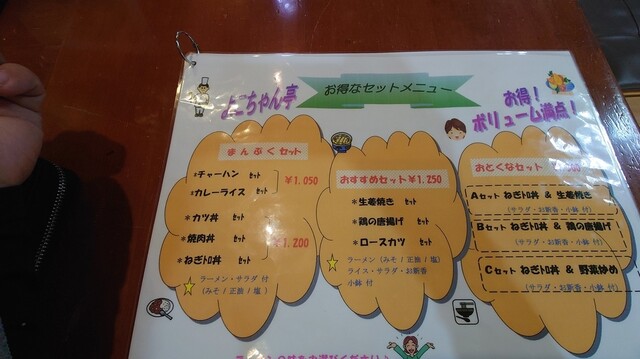 よこちゃん亭
お得なセットメニュー
お得！
ボリューム満点！
まんぷくセット
*チャーハン セット
*カレーライス セット
¥1,050
*カツ丼 セット
*焼肉丼 セット
*ねぎトロ丼 セット
¥1,200
ラーメン・サラダ 付
(みそ / 正油 / 塩)
おすすめセット¥1,250
*生姜焼き
*鶏の唐揚げ
*ロースカツ
ラーメン(みそ / 正油 / 塩)
ライス・サラダ・お新香
小鉢 付
おとくなセット
Aセット ねぎトロ丼 & 生姜焼き
(サラダ・お新香・小鉢 付)
Bセット ねぎトロ丼 & 鶏の唐揚げ
(サラダ・お新香・小鉢 付)
Cセット ねぎトロ丼 & 野菜炒め
(サラダ・お新香・小鉢 付)